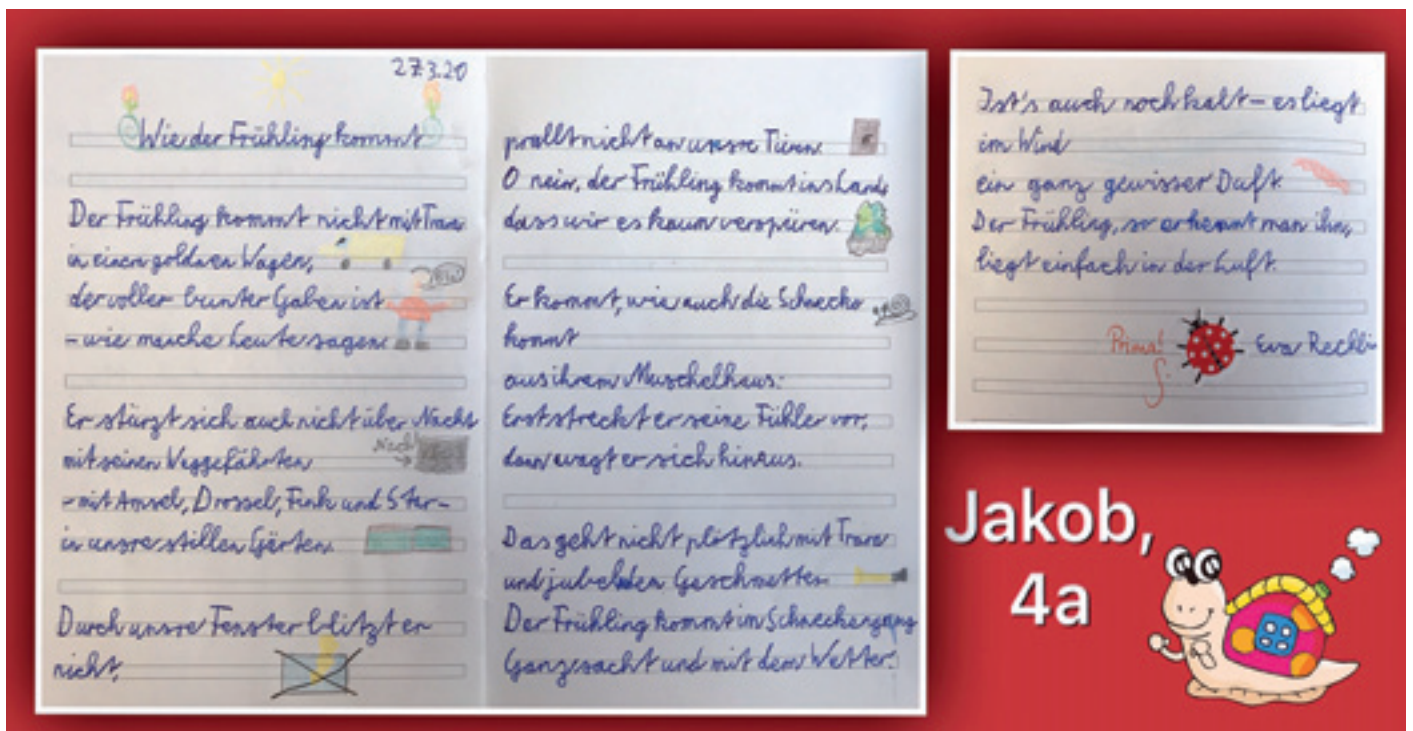 27.3.20
Wie der Frühling kommt
Der Frühling kommt nicht mit Trara
in einem goldnen Wagen,
der voller bunter Gaben ist
– wie manche Leute sagen.
Er stürzt sich auch nicht über Nacht
mit seinen Weggefährten
Nacht
– mit Amsel, Drossel, Fink und Star –
in unsre stillen Gärten.
Durch unsre Fenster blitzt er
nicht,
prallt nicht an unsre Türen.
O nein, der Frühling kommt ins Land,
dass wir es kaum verspüren.
Er kommt, wie auch die Schnecke
kommt
aus ihrem Muschelhaus:
Erst streckt er seine Fühler vor,
dann wagt er sich hinaus.
Das geht nicht plötzlich mit Trara
und jubelnden Geschmetter.
Der Frühling kommt im Schneckengang
Ganz sacht und mit dem Wetter.
Ist's auch noch kalt – es liegt
im Wind
ein ganz gewisser Duft.
Der Frühling, so erkennt man ihn,
liegt einfach in der Luft.
Prima!
Eva Rechlin
Jakob,
4a